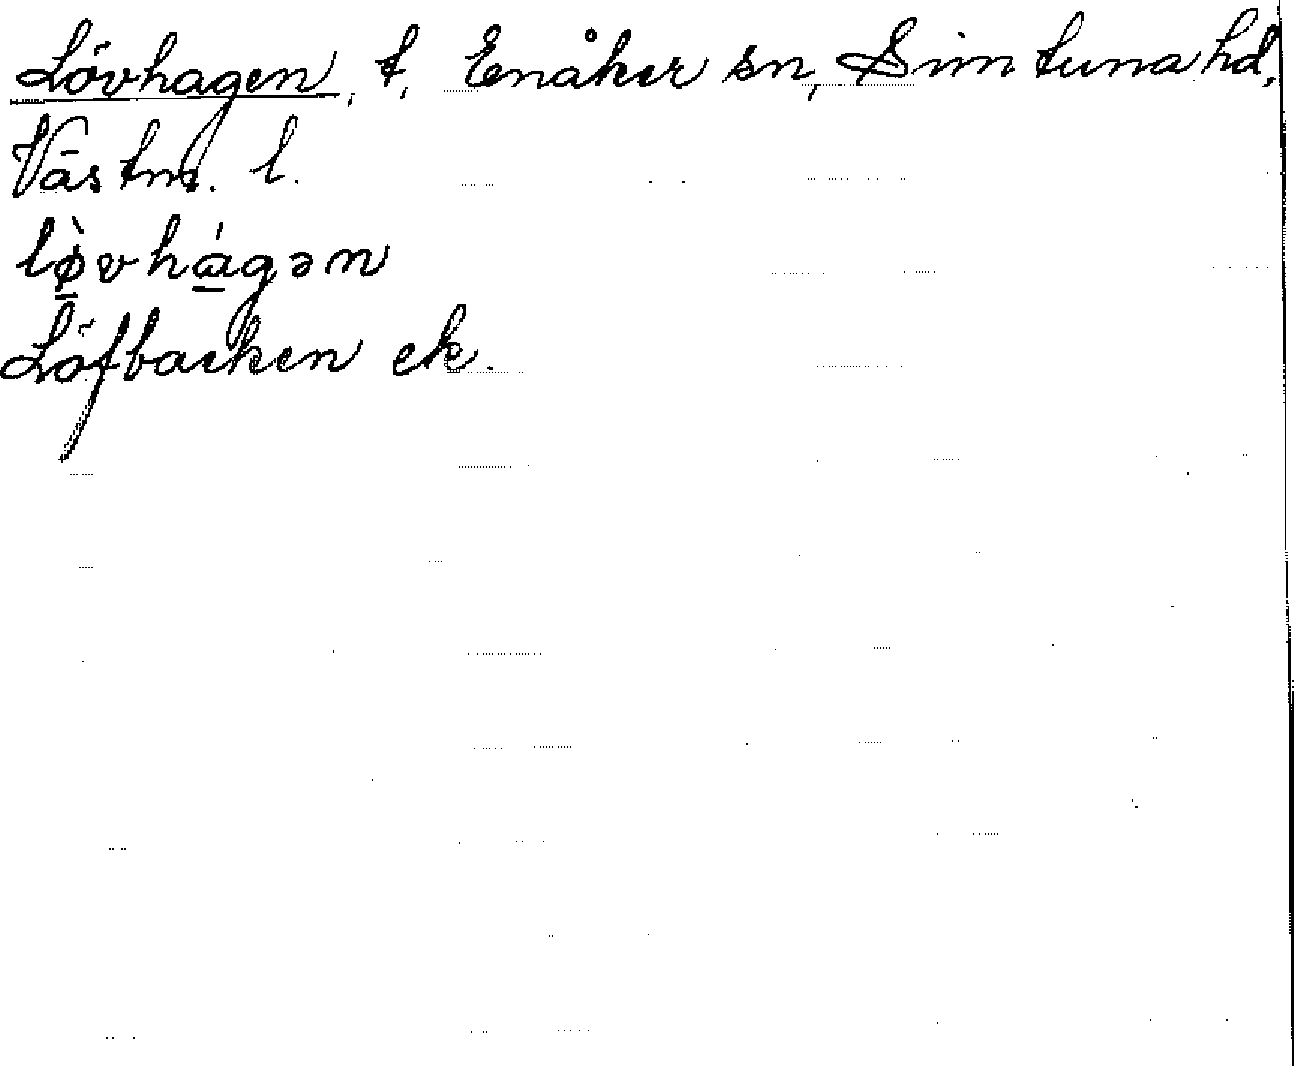 Lövhagen, t, Enåker sn, Simtuna hd,
Västm. l.
lø̱̀vhá̱gən
Löfbacken ek.